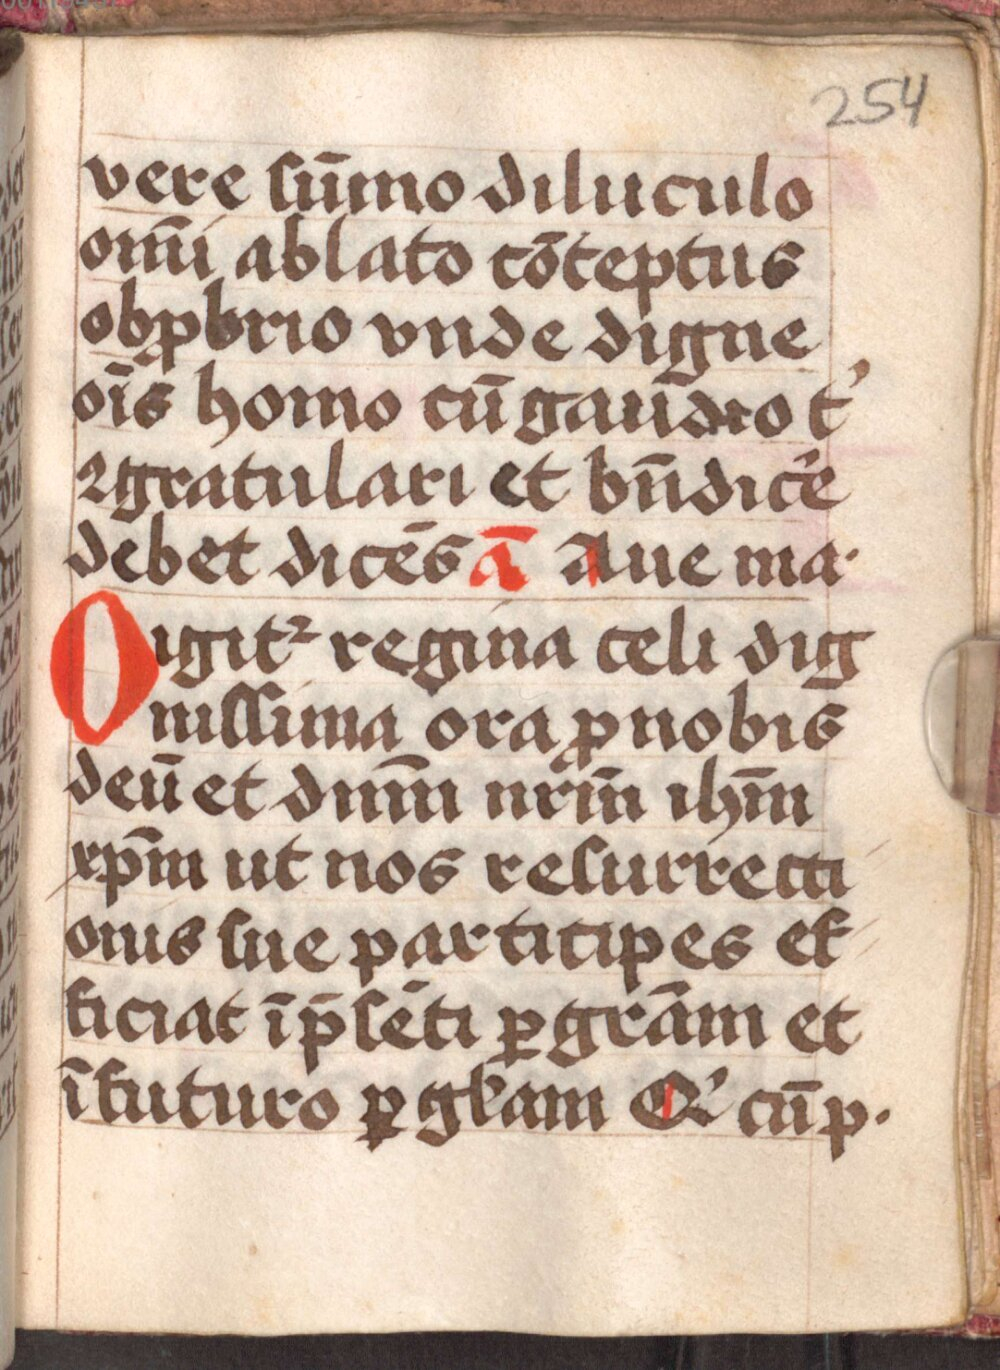 254
vere sūmo diluculo
om̄i ablato cōceptus
obꝓbrio vnde digne
oīs homo cū gaud̄io tʼ
ꝯgratulari et bn̄dicʼe
debet dicēs ā Aue ma.
Oigitꝛ regina celi dig
nissima ora ꝓ nobis
deū et dnm̄ nrm̄ ihm̄
xp̄m ut nos resurrecti
onis sue participes ef
ficiat ī p̄sēti ꝑ grām et
ī futuro ꝑ gl̄am Qʼ cū p.